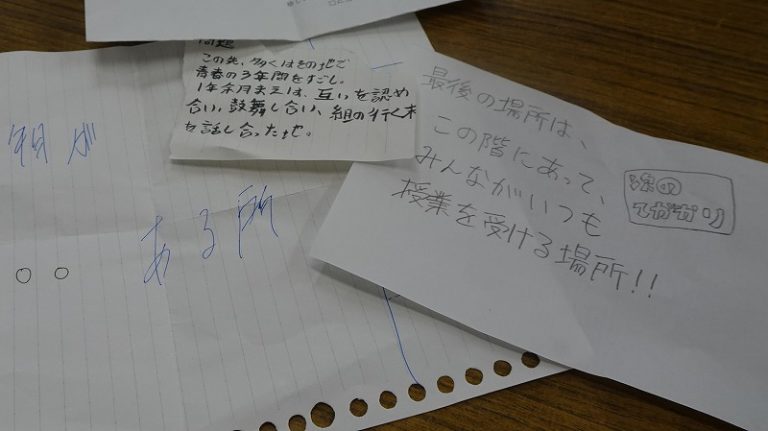 問題
この先、多くはその地で
青春の3年間をすごし。
1年余月まえは、互いを認め
合い、鼓舞し合い、組の行く末
を話し合った地。
最後の場所は、
この階にあって、
みんながいつも
授業を受ける場所!!
次の
てがかり
が
ある所
○○